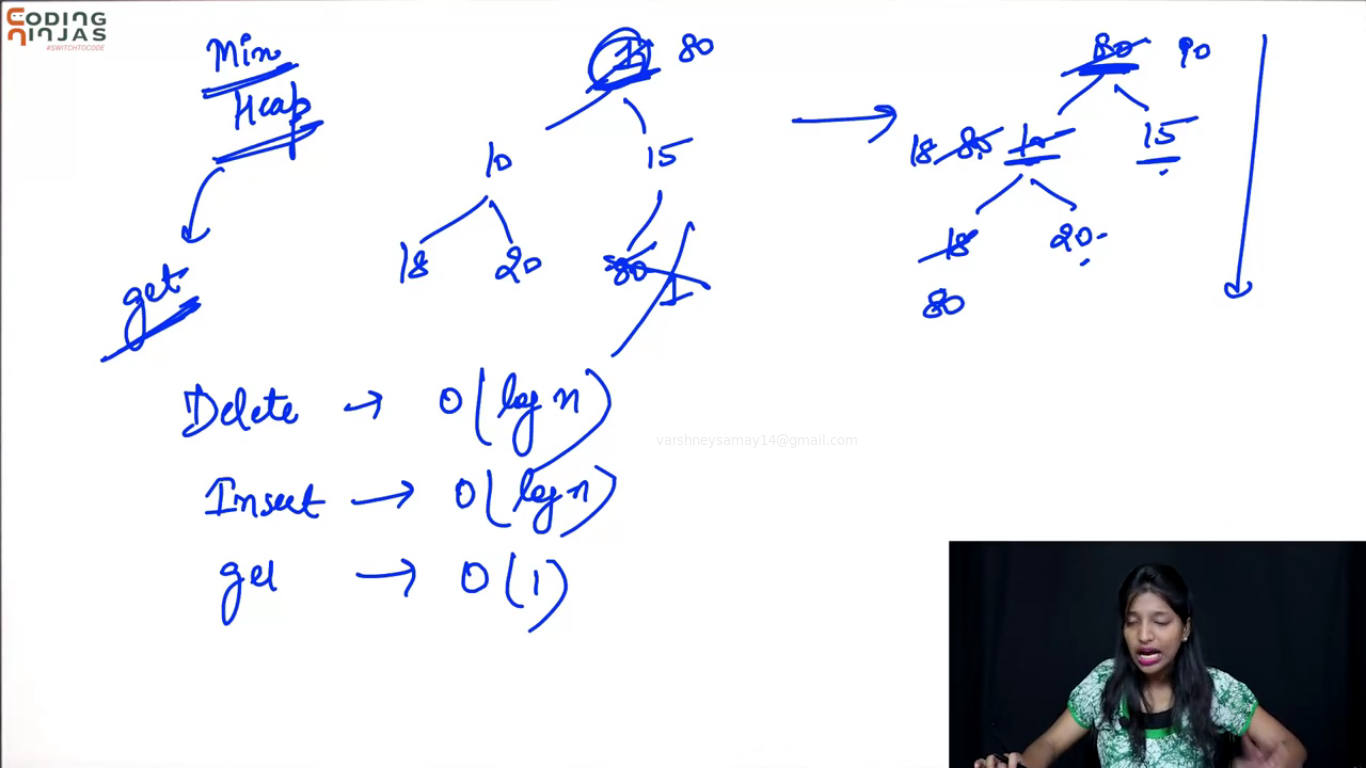 CODING
NINJAS
#SWITCHTOCODE
Min
Heap
get
80
10 15
18 20 80
80 90
18 85 10 15
18 20
80
Delete → O(log n)
Insert → O(log n)
get → O(1)
varshneysamay14@gmail.com